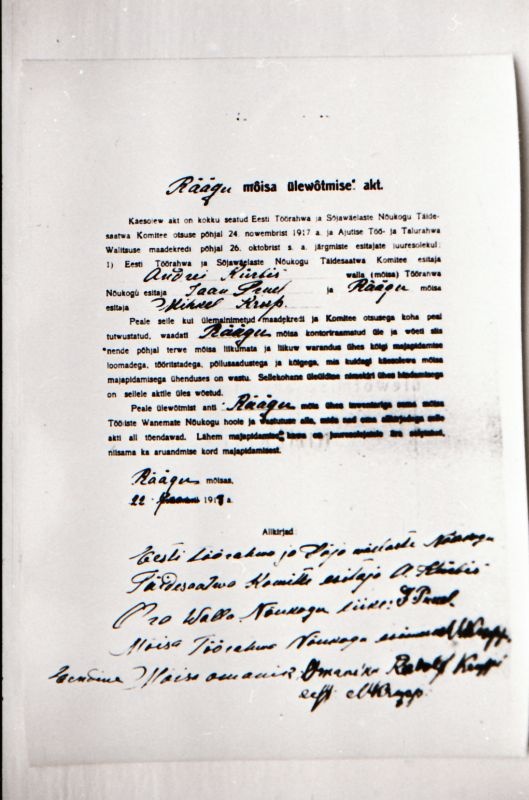 Räägu mõisa ülewõtmise akt.
Käesolew akt on kokku seatud Eesti Töörahwa ja Sõjawäelaste Nõukogu Täide-
saatwa Komitee otsuse põhjal 24. nowembrist 1917 a. ja Ajutise Töö- ja Talurahwa
Walitsuse maadekredi põhjal 26. oktobrist s. a. järgmiste esitajate juuresolekul:
1) Eesti Töörahwa ja Sõjawäelaste Nõukogu Täidesaatwa Komitee esitaja
Andrei Kürbis walla (mõisa) Töörahwa
Nõukogu esitaja Jaan Pruel ja Räägu mõisa
esitaja Mihkel Krup.
Peale selle kui ülemalnimetud maadekredi ja Komitee otsusega koha peal
tutwustatud, waadati Räägu mõisa kontoriraamatud üle ja wõeti siis
nende põhjal terwe mõisa liikumata ja liikuw warandus ühes kõigi majapidamise
loomadega, tööriistadega, põllusaadustega ja kõigega, mis kuidagi käesolewa mõisa
majapidamisega ühenduses on wastu. Sellekohane üleüldine nimekiri ühes hindamisega
on sellele aktile üles wõetud.
Peale ülewõtmist anti Räägu mõis ühes
Tööliste Wanemate Nõukogu hoole ja wastutuse alla, mida nad oma allkirjadega selle
akti all tõendawad. Lähem majapidamise
niisama ka aruandmise kord majapidamisest.
Räägu mõisas,
22. 191 a.
Allkirjad:
Eesti töörahwa ja Sõja wäelaste Nõukogu
Täidesaatwa Komitee esitaja A. Kürbis
Walla Nõukogu liige: J Pruel
Mõisa Töörahwa Nõukogu esimees M Krupp.
Endine Mõisa omanik Omaniku Rudolf
eest M Krupp.